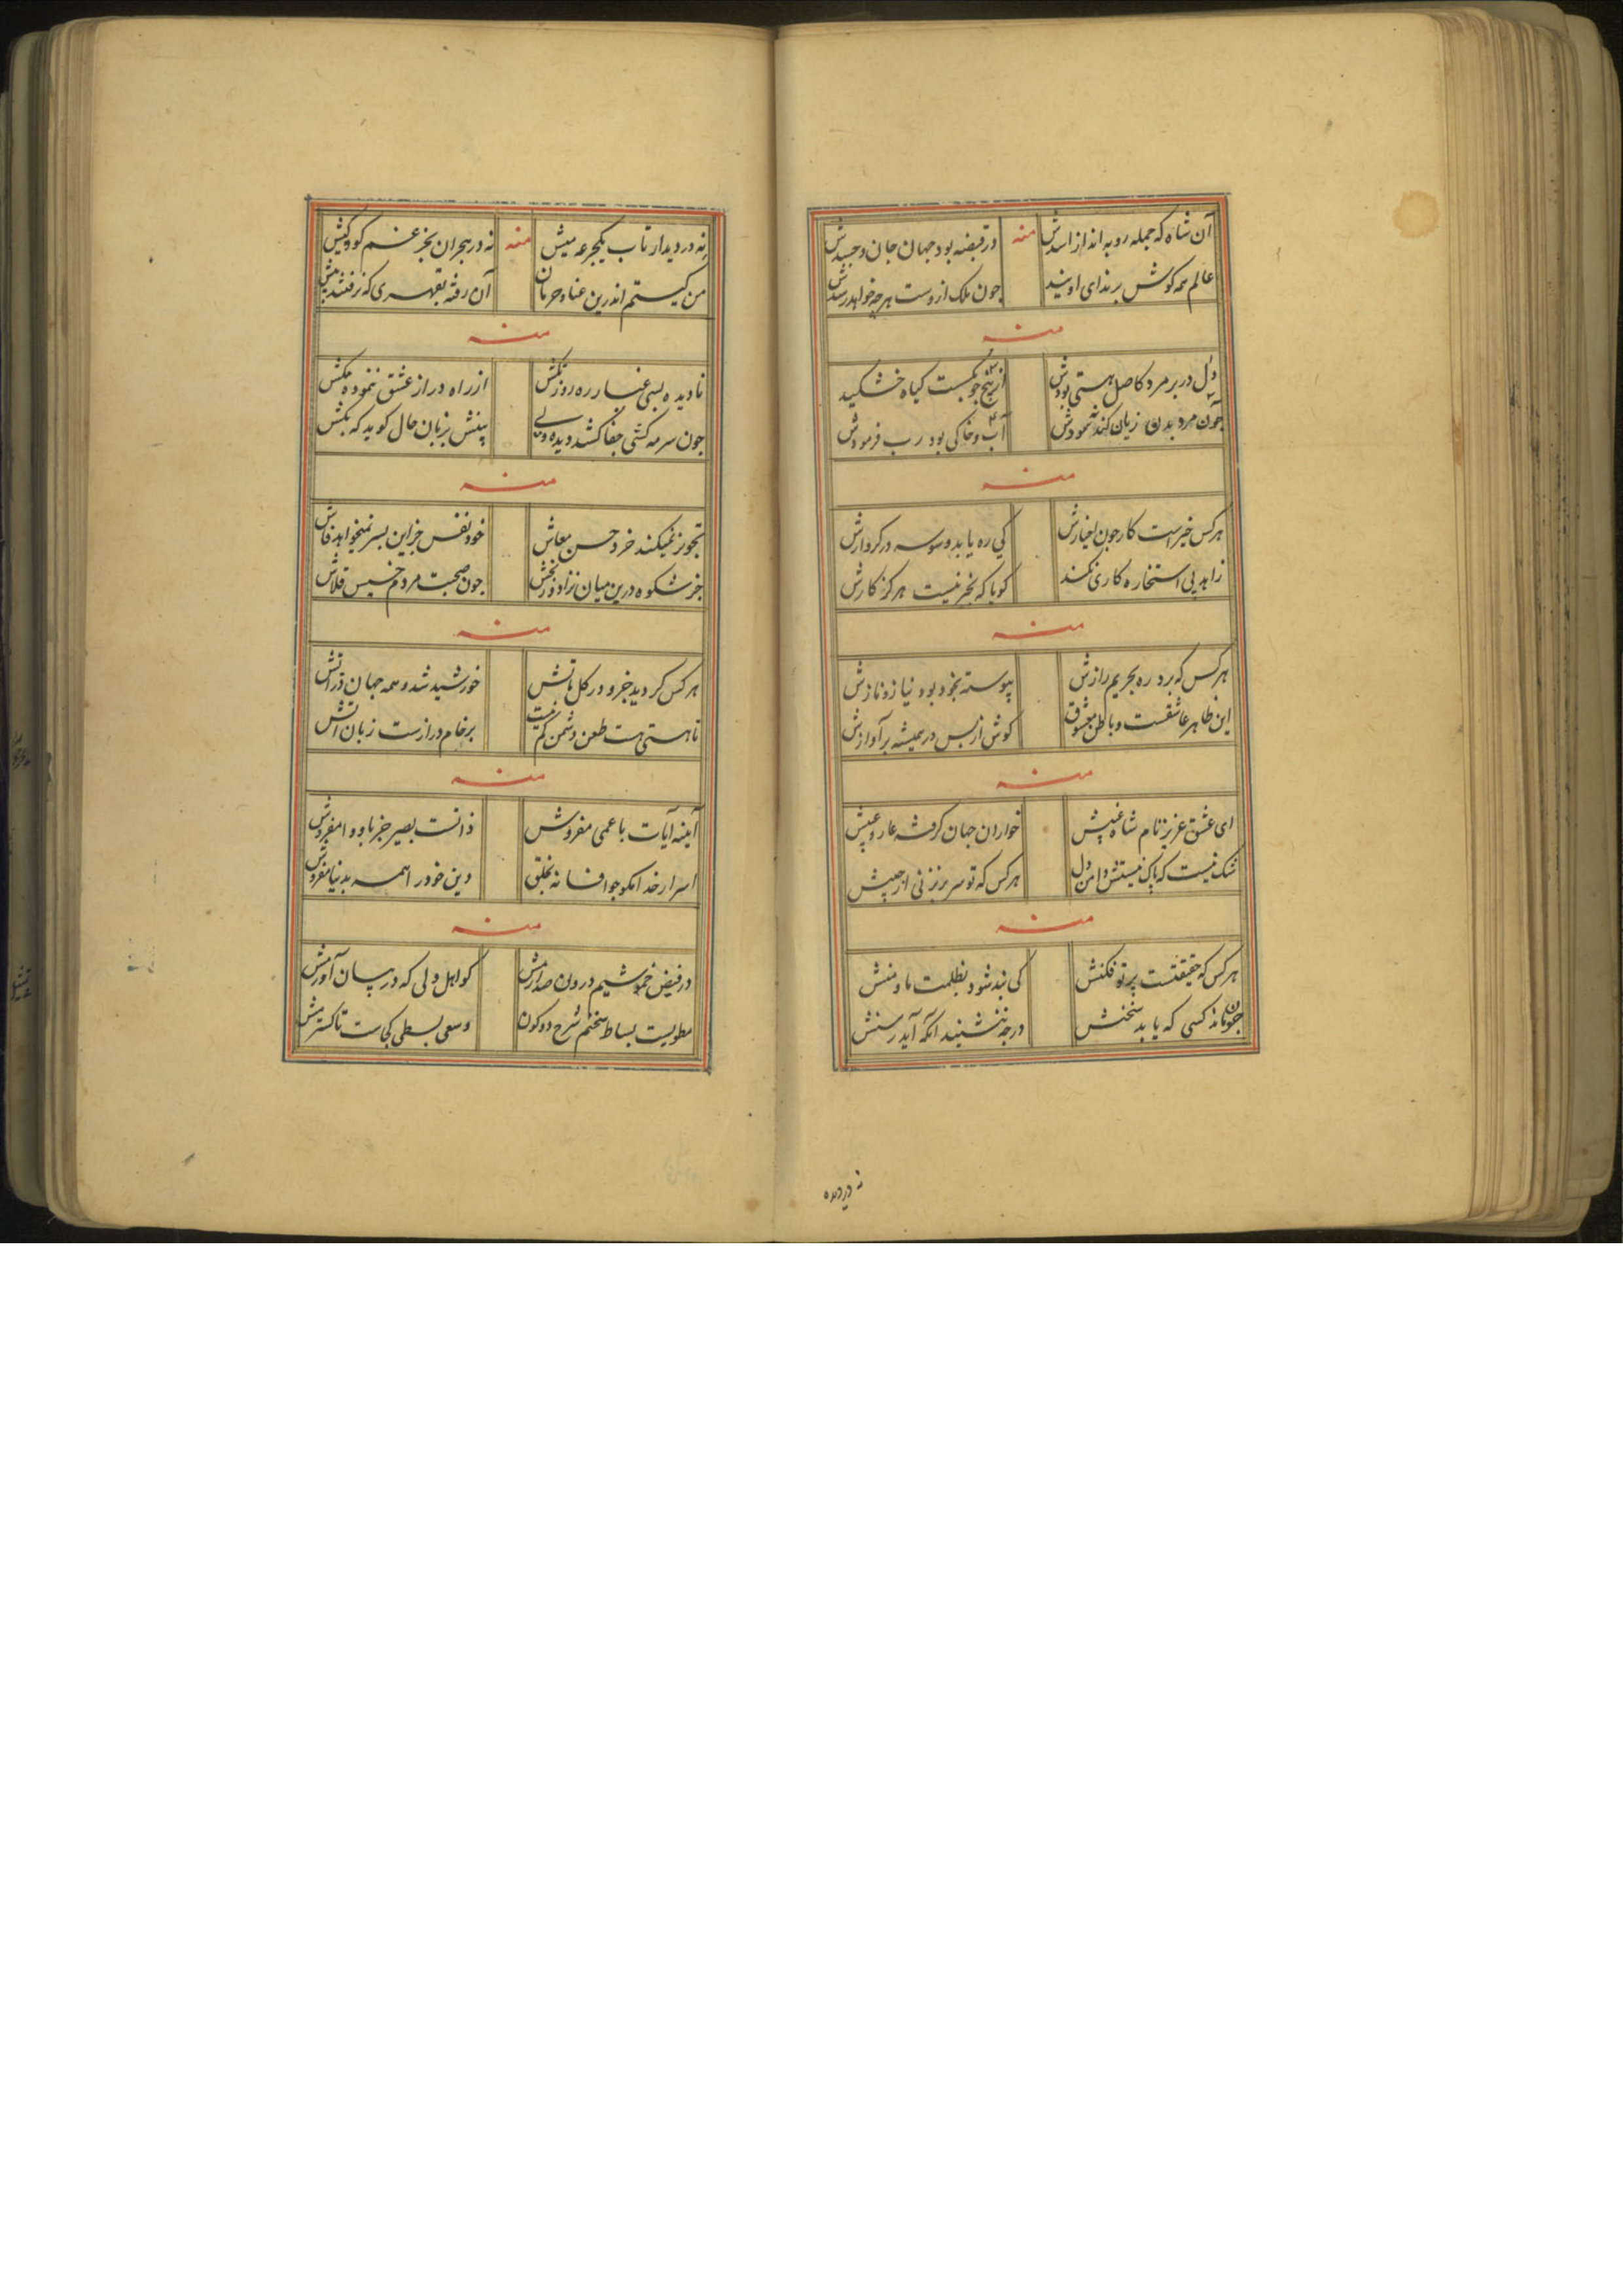 آن شاه که جمله رو به انداز اسدش منه در قبضه بود جهان جان و جسدش
عالم همه گوش بر ندای اویند چون ملک ازوست هرچه خواهد رسدش
منه
دل در بر مرد کاصل هستی بودش از بیخ چو بگسست گیاه خشکید
چون مرد بدن زیان کند آب و خاکی بود رب فرمودش
منه
هرکس خیرست کار چون اخیارش کی ره یابد وسوسه در کردارش
زاهد بی استخاره کاری نکند گویا که بخیر نیست هرگز کارش
منه
هرکس که برد ره بحریم رازش پیوسته بخود بود نیاز و نازش
این ظاهر عاشقست و باطن معشوق گوش از پس در همیشه بر آوازش
منه
ای عشق عزیز نام شاه خواران جهان گرفته عار و
شک نیست که پاک نیستش دامن دل هرکس که تو سر بر نزنی از جیبش
منه
هرکس که حقیقتست پرتو فکنش کی بند شود بظلمت ما و منش
چون ماند کسی که یابد در چه ننشیند آنکه آید رسنش
نه در دیدار تاب یکجرعه میش منه نه در هجران بجز غم
من کیستم اندرین عنا و حرمان آن رفته بقهری که نرفتند پیش
منه
نادیده بسی غبار ره روز از راه دراز عشق ننموده مکش
چون سرمه کشی جفا کشد دیده ولی بزبان حال گوید که بکش
منه
تجویز نمیکند خرد حسن معاش خود نفس جز این بسر نمیخواهد فاش
جز شکوه درین میان نزاد چون صحبت مردم خسیس قلاش
منه
هرکس گردید جزو در کل ماتش خورشید شد و همه جهان ذراتش
تا هستی هست طعن دشمن کم نیست بر خام درازست زبان آتش
منه
آیینه آیات با عمی مفروش ذاتست بصیر جز باو وا مفروش
اسرار خدا مگو چو افسانه بخلق دین خود را همه بدنیا مفروش
منه
در فیض خموشیم درون صد رامش کو اهل دلی که در بیان آورمش
مطویست بساط سخنم شرح دو کون وسعی بسطی کجاست تا گسترمش
نه در دیدار